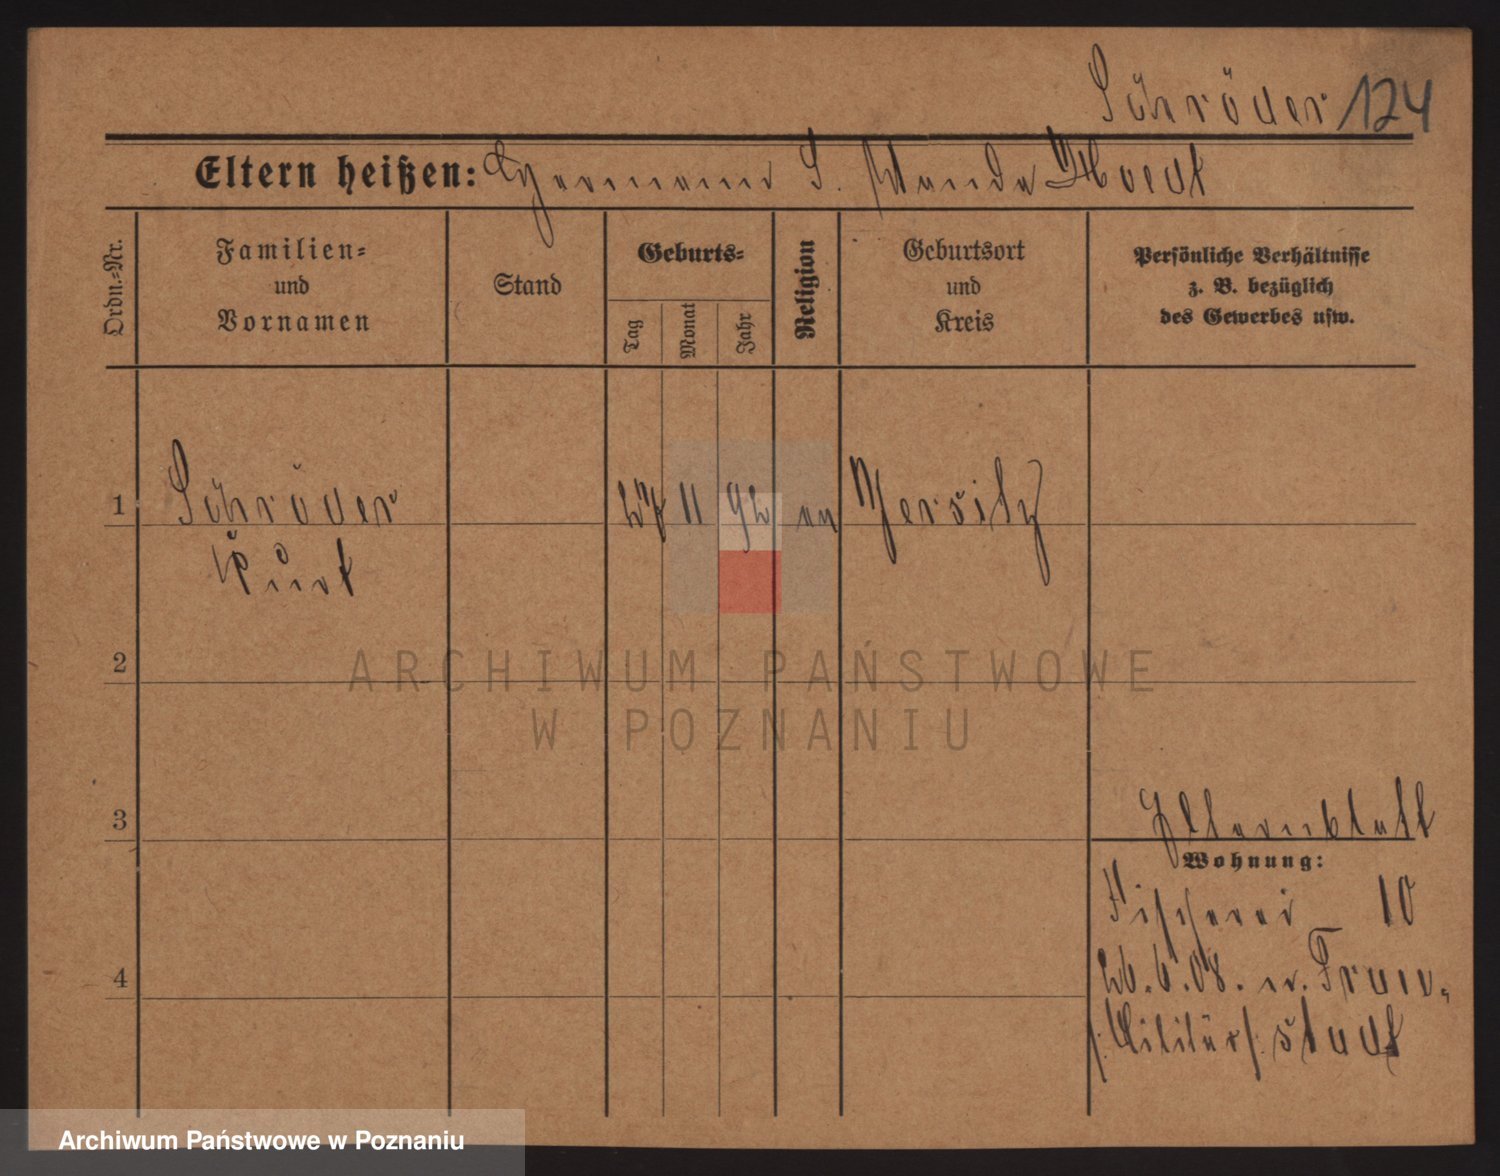 Schröder 124
Eltern heißen: Hermann S. Wanda
Ordn.-Nr.
Familien-
und
Vornamen
Stand
Geburts-
Tag
Monat
Jahr
Religion
Geburtsort
und
Kreis
Persönliche Verhältnisse
z. B. bezüglich
des Gewerbes usw.
1
Schröder 27 11 92 ev Jersitz
Kurt
2
ARCHIWUM PAŃSTWOWE
W POZNANIU
3
Elternblatt
Wohnung:
Fischerei 10
4
26.6.08. n. Frau-
/: Militär :/ stadt
Archiwum Państwowe w Poznaniu